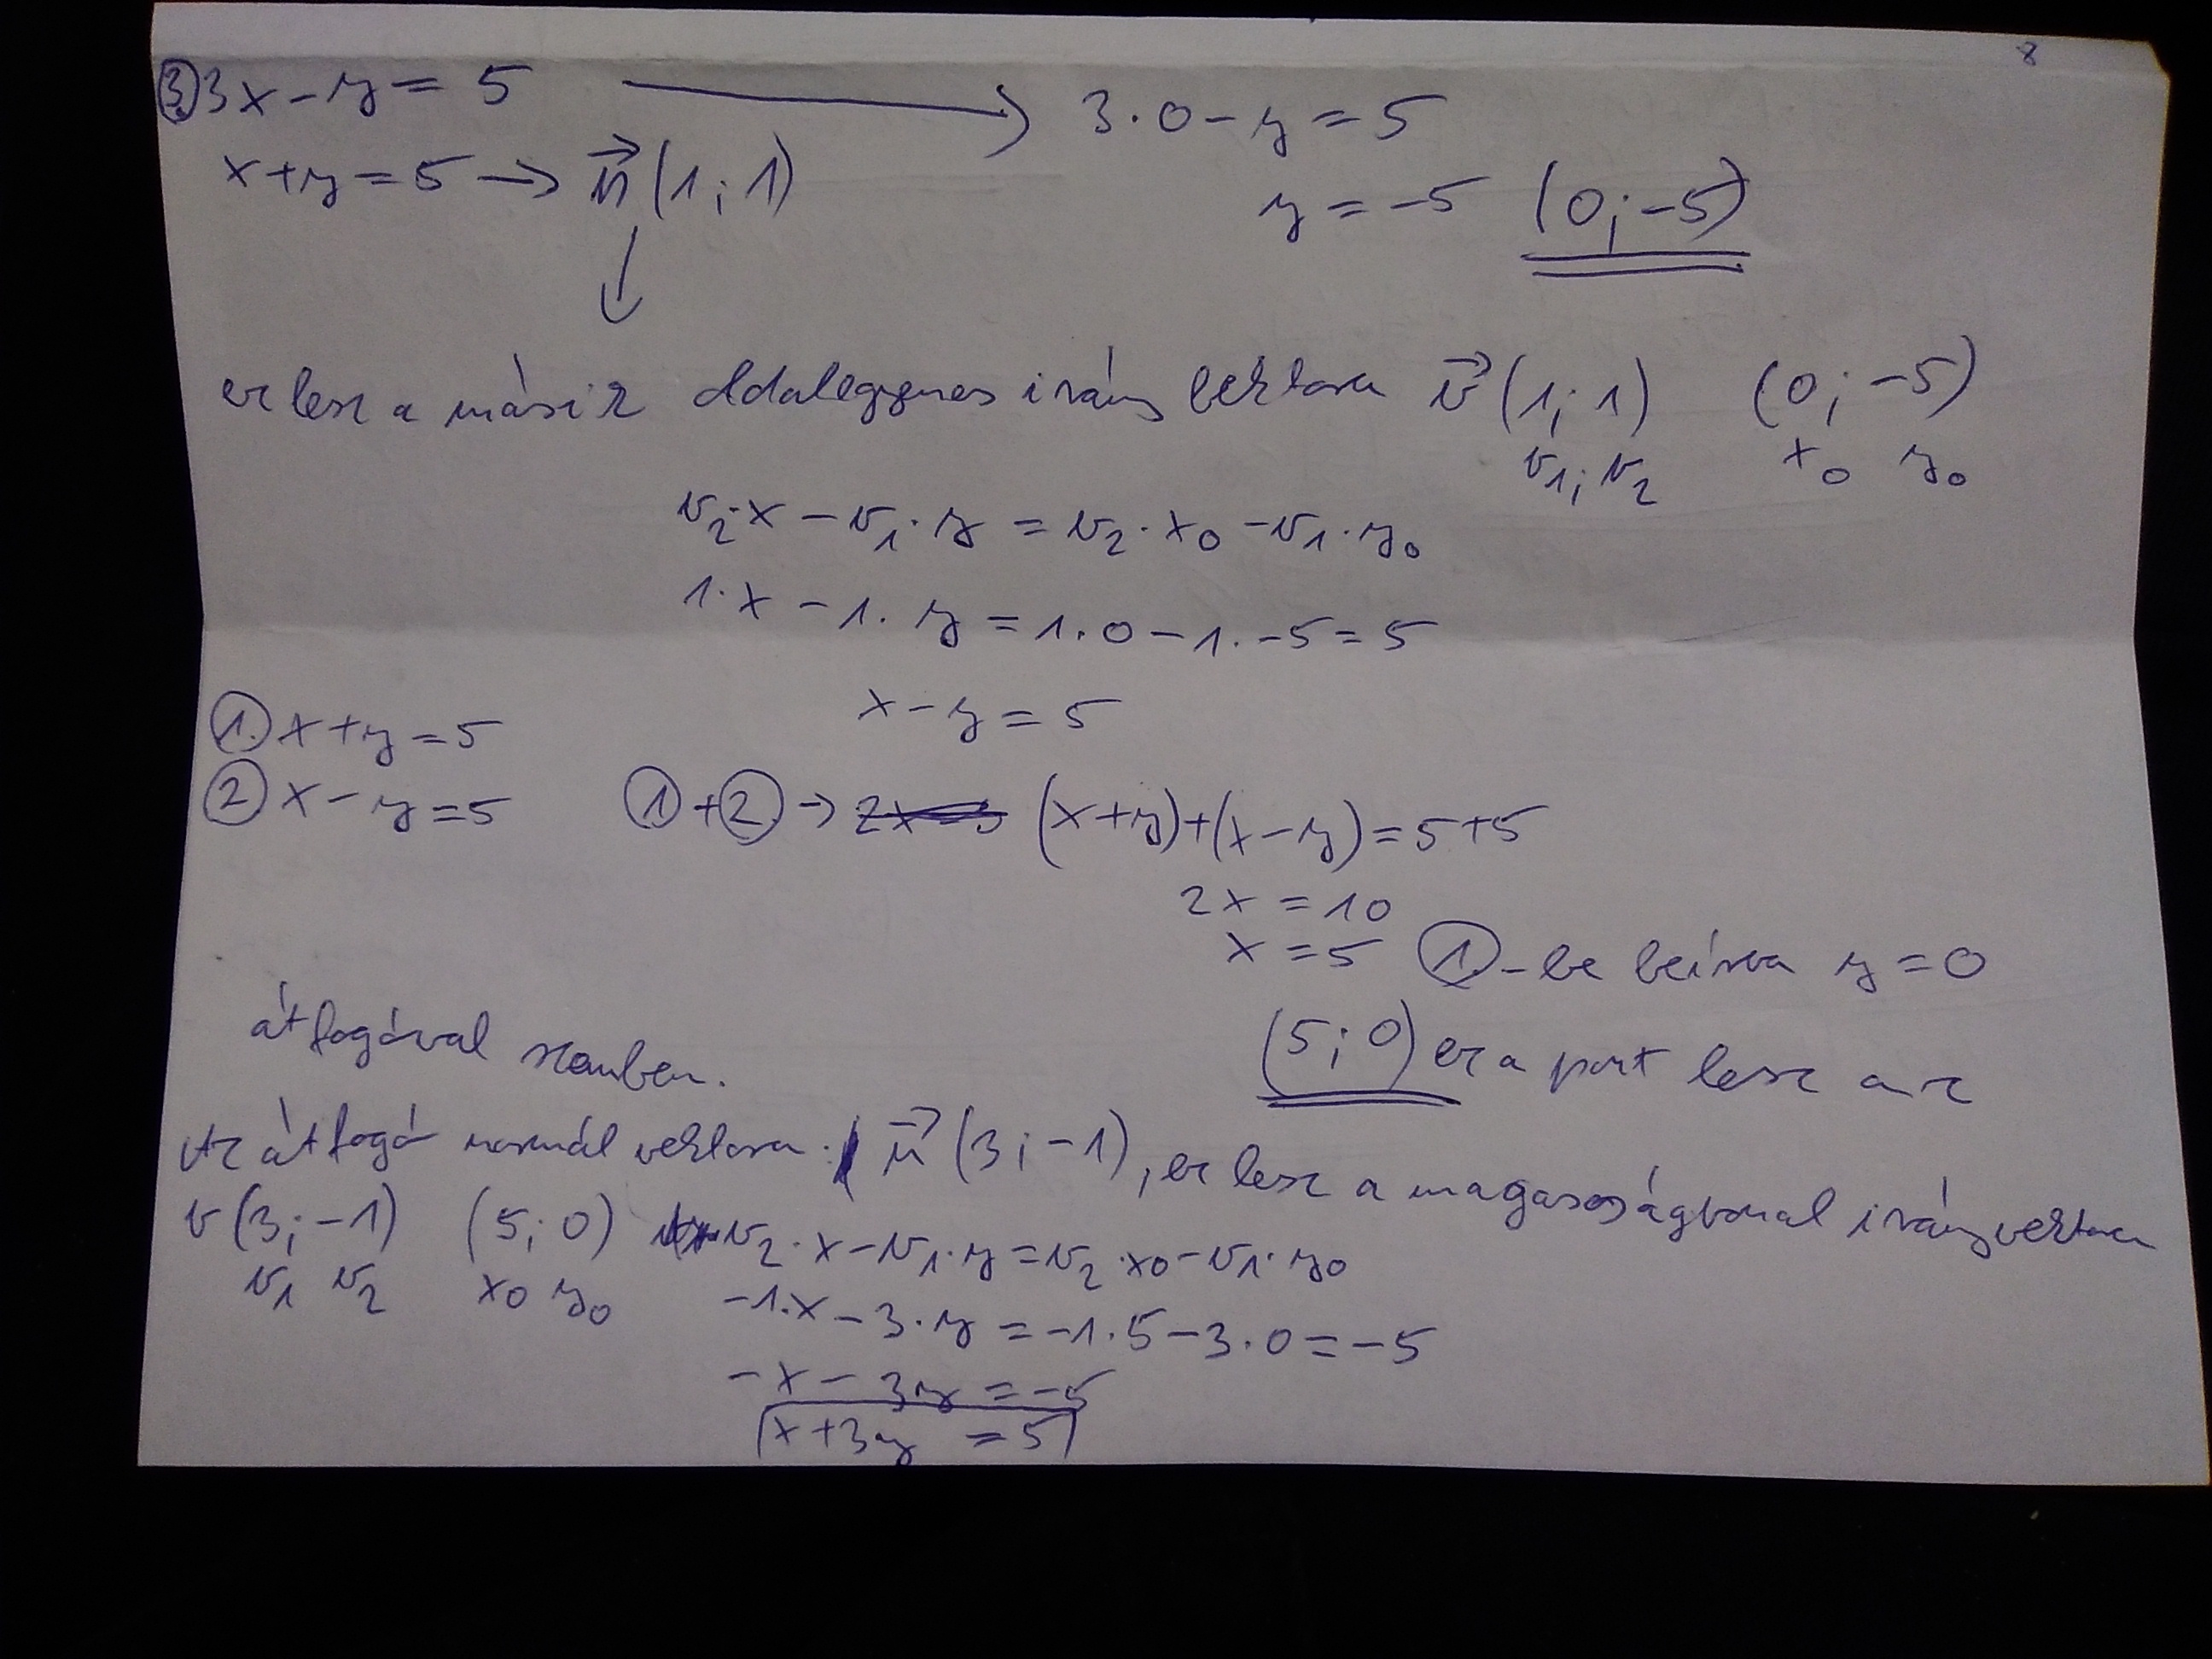 8
③ 3x - y = 5 → 3·0 - y = 5
x + y = 5 → n⃗ (1; 1) y = -5 (0; -5)
↓
ez lesz a másik oldalegyenes irány vektora v⃗ (1; 1) (0; -5)
v₁; v₂ x₀ y₀
v₂·x - v₁·y = v₂·x₀ - v₁·y₀
1·x - 1·y = 1·0 - 1·-5 = 5
x - y = 5
① x + y = 5
② x - y = 5 ① + ② → (x+y)+(x-y) = 5+5
2x = 10
x = 5 ①-be beírva y = 0
(5; 0) ez a pont lesz az
átfogóval szemben.
Az átfogó normál vektora: n⃗ (3; -1), ez lesz a magasságvonal irányvektora
v (3; -1) (5; 0) v₂·x - v₁·y = v₂·x₀ - v₁·y₀
v₁ v₂ x₀ y₀ -1·x - 3·y = -1·5 - 3·0 = -5
-x - 3y = -5
x + 3y = 5